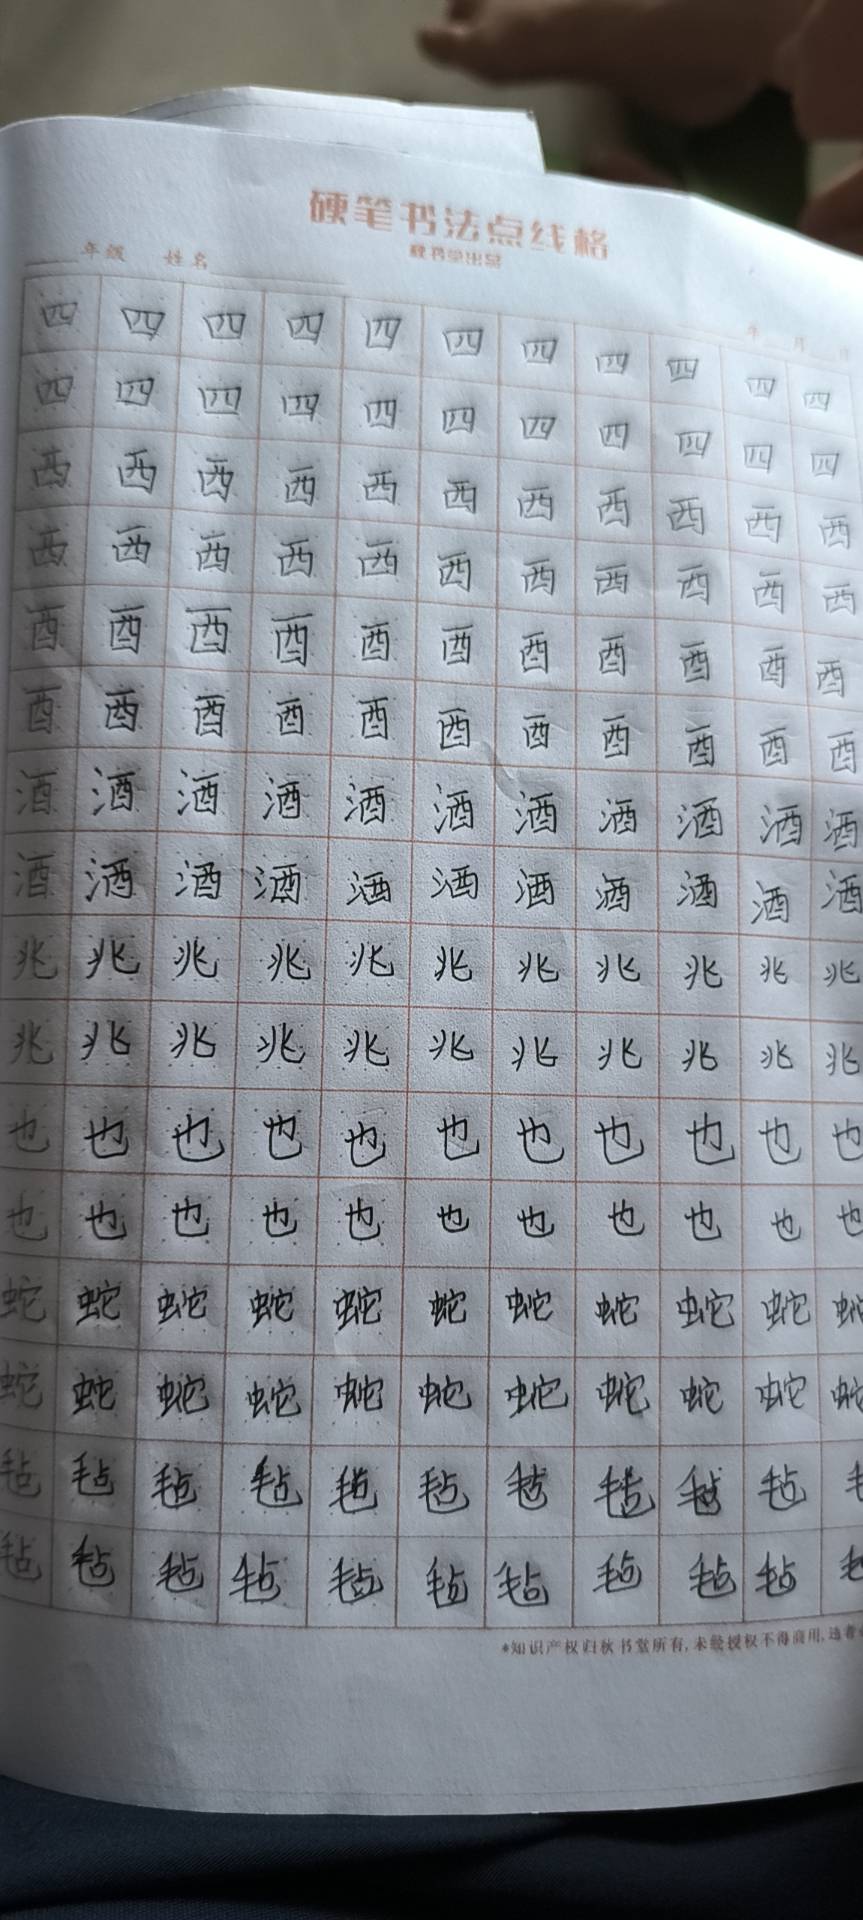 硬笔书法点线格
秋书堂出品
年级 姓名
年 月 日
四四四四四四四四四四四
四四四四四四四四四四四
西西西西西西西西西西西
西西西西西西西西西西西
酉酉酉酉酉酉酉酉酉酉酉
酉酉酉酉酉酉酉酉酉酉酉
酒酒酒酒酒酒酒酒酒酒酒
酒酒酒酒酒酒酒酒酒酒酒
兆兆兆兆兆兆兆兆兆兆兆
兆兆兆兆兆兆兆兆兆兆兆
也也也也也也也也也也也
也也也也也也也也也也也
蛇蛇蛇蛇蛇蛇蛇蛇蛇蛇蛇
蛇蛇蛇蛇蛇蛇蛇蛇蛇蛇蛇
毡毡毡毡毡毡毡毡毡毡
毡毡毡毡毡毡毡毡毡毡
*知识产权归秋书堂所有,未经授权不得商用,违者